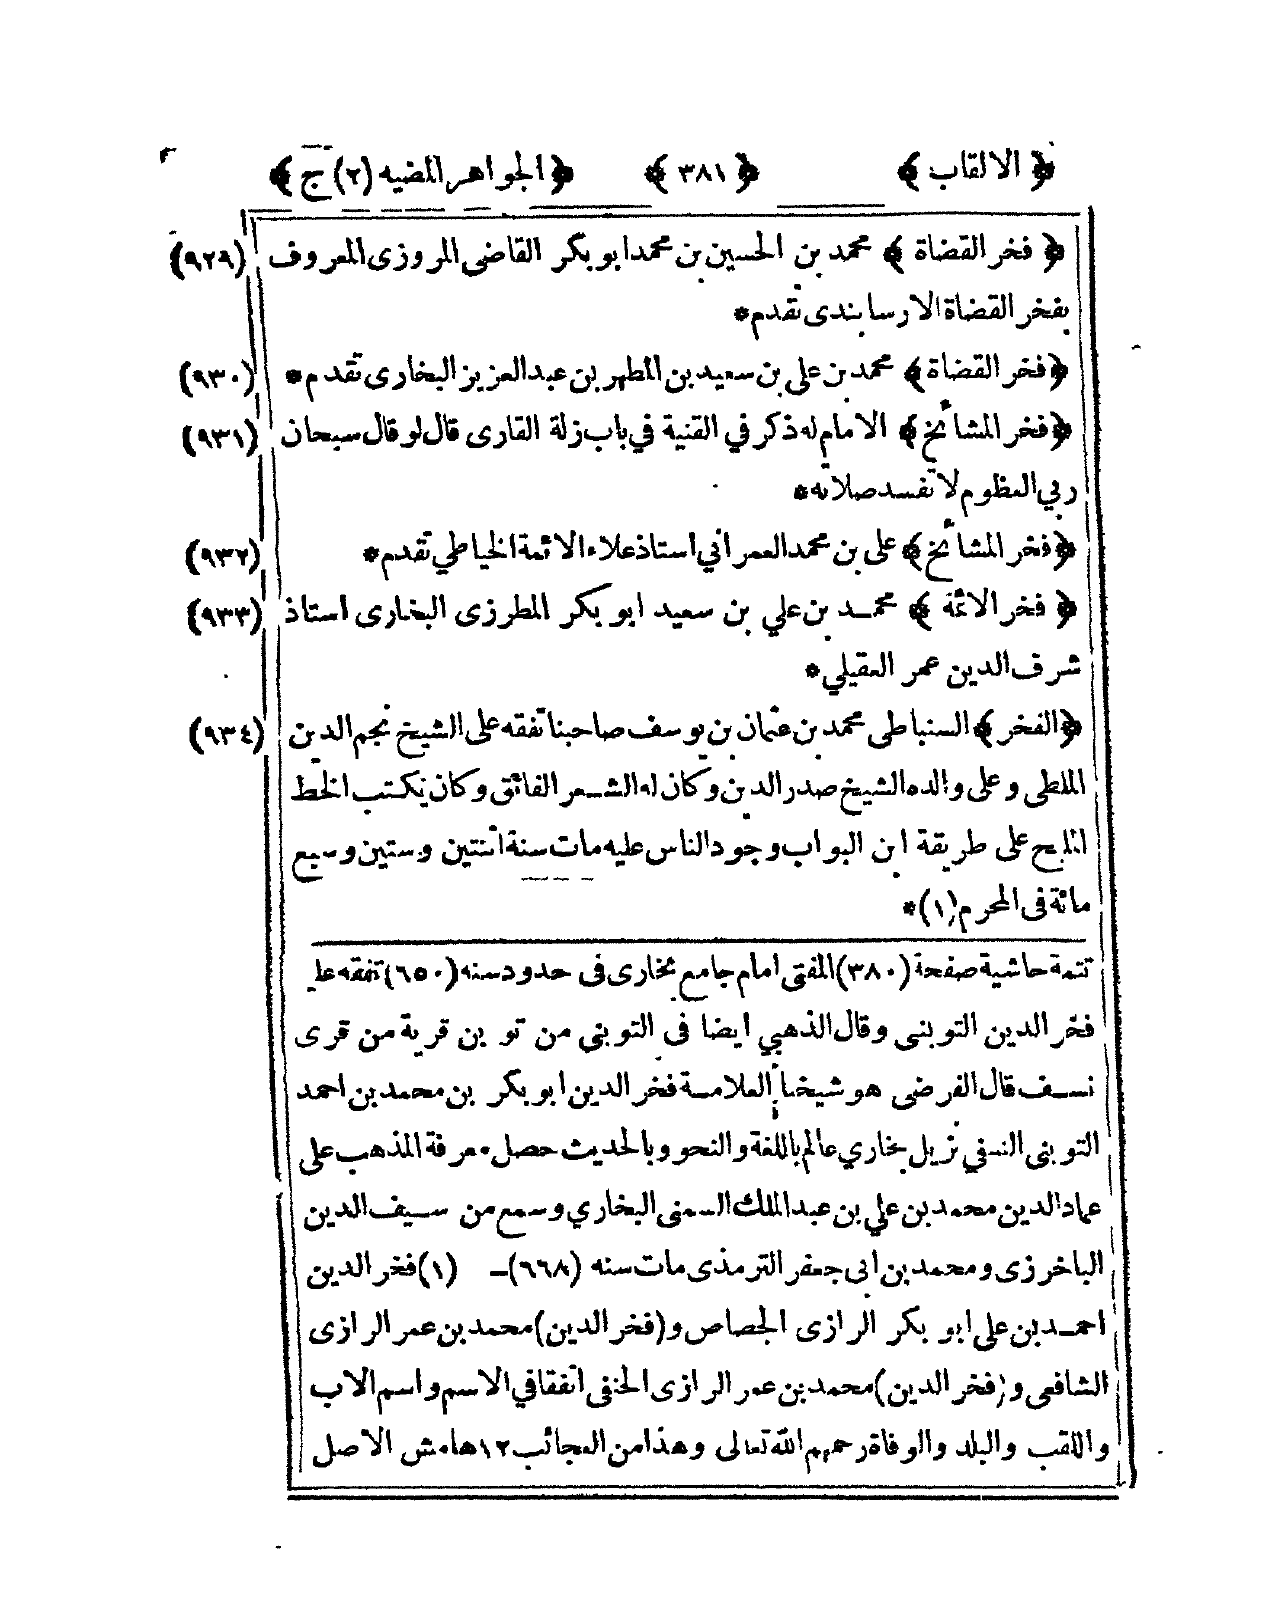 ﴿ الالقاب ﴾ ﴿ ٣٨١ ﴾ ﴿ الجواهر المضيه (٢) ج ﴾
﴿ فخر القضاة ﴾ محمد بن الحسين بن محمد ابو بكر القاضى المروزى المعروف (٩٢٩)
بفخر القضاة الارسابندى تقدم *
﴿ فخر القضاة ﴾ محمد بن على بن سعيد بن المطهر بن عبد العزيز البخارى تقدم * (٩٣٠)
﴿ فخر المشائخ ﴾ الامام له ذكر في القنية في باب زلة القارى قال لو قال سبحان (٩٣١)
ربي العظوم لا تفسد صلاته *
﴿ فخر المشائخ ﴾ على بن محمد العمراني استاذ علاء الائمة الخياطي تقدم * (٩٣٢)
﴿ فخر الائمة ﴾ محمد بن علي بن سعيد ابو بكر المطرزى البخارى استاذ (٩٣٣)
شرف الدين عمر العقيلي *
﴿ الفخر ﴾ السنباطى محمد بن عثمان بن يوسف صاحبنا تفقه على الشيخ نجم الدين (٩٣٤)
الملطى و على والده الشيخ صدر الدين وكان له الشعر الفائق وكان يكتب الخط
المليح على طريقة ابن البواب وجود الناس عليه مات سنة اثنتين وستين وسبع
مائة فى المحرم (١) *
تتمة حاشية صفحة (٣٨٠) المفتى امام جامع بخارى فى حدود سنه (٦٥٠) تفقه على
فخر الدين التوبنى وقال الذهبي ايضا فى التوبني من توبن قرية من قرى
نسف قال الفرضى هو شيخنا العلامة فخر الدين ابو بكر بن محمد بن احمد
التوبنى النسفي نزيل بخاري عالم باللغة والنحو وبالحديث حصل معرفة المذهب على
عماد الدين محمد بن علي بن عبد الملك السمنى البخاري وسمع من سيف الدين
الباخرزى ومحمد بن ابى جعفر الترمذى مات سنه (٦٦٨) ــ (١) فخر الدين
احمد بن على ابو بكر الرازى الجصاص و (فخر الدين) محمد بن عمر الرازى
الشافعى و (فخر الدين) محمد بن عمر الرازى الحنفى اتفقا في الاسم واسم الاب
واللقب والبلد والوفاة رحمهم الله تعالى وهذا من العجائب ١٢ هامش الاصل